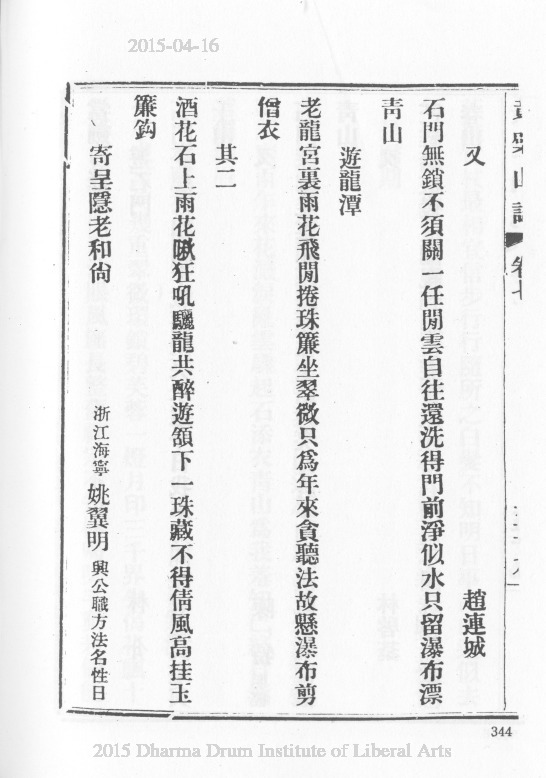 2015-04-16
黃檗山誌 卷七
又 趙連城
石門無鎖不須關一任閒雲自往還洗得門前淨似水只留瀑布漂
靑山
遊龍潭
老龍宮裏雨花飛閒捲珠簾坐翠微只爲年來貪聽法故懸瀑布剪
僧衣
其二
酒花石上雨花噉狂吼驪龍共醉遊頷下一珠藏不得倩風高挂玉
簾鈎
寄呈隱老和尙
浙江海寧 姚翼明 興公職方法名性日
344
2015 Dharma Drum Institute of Liberal Arts